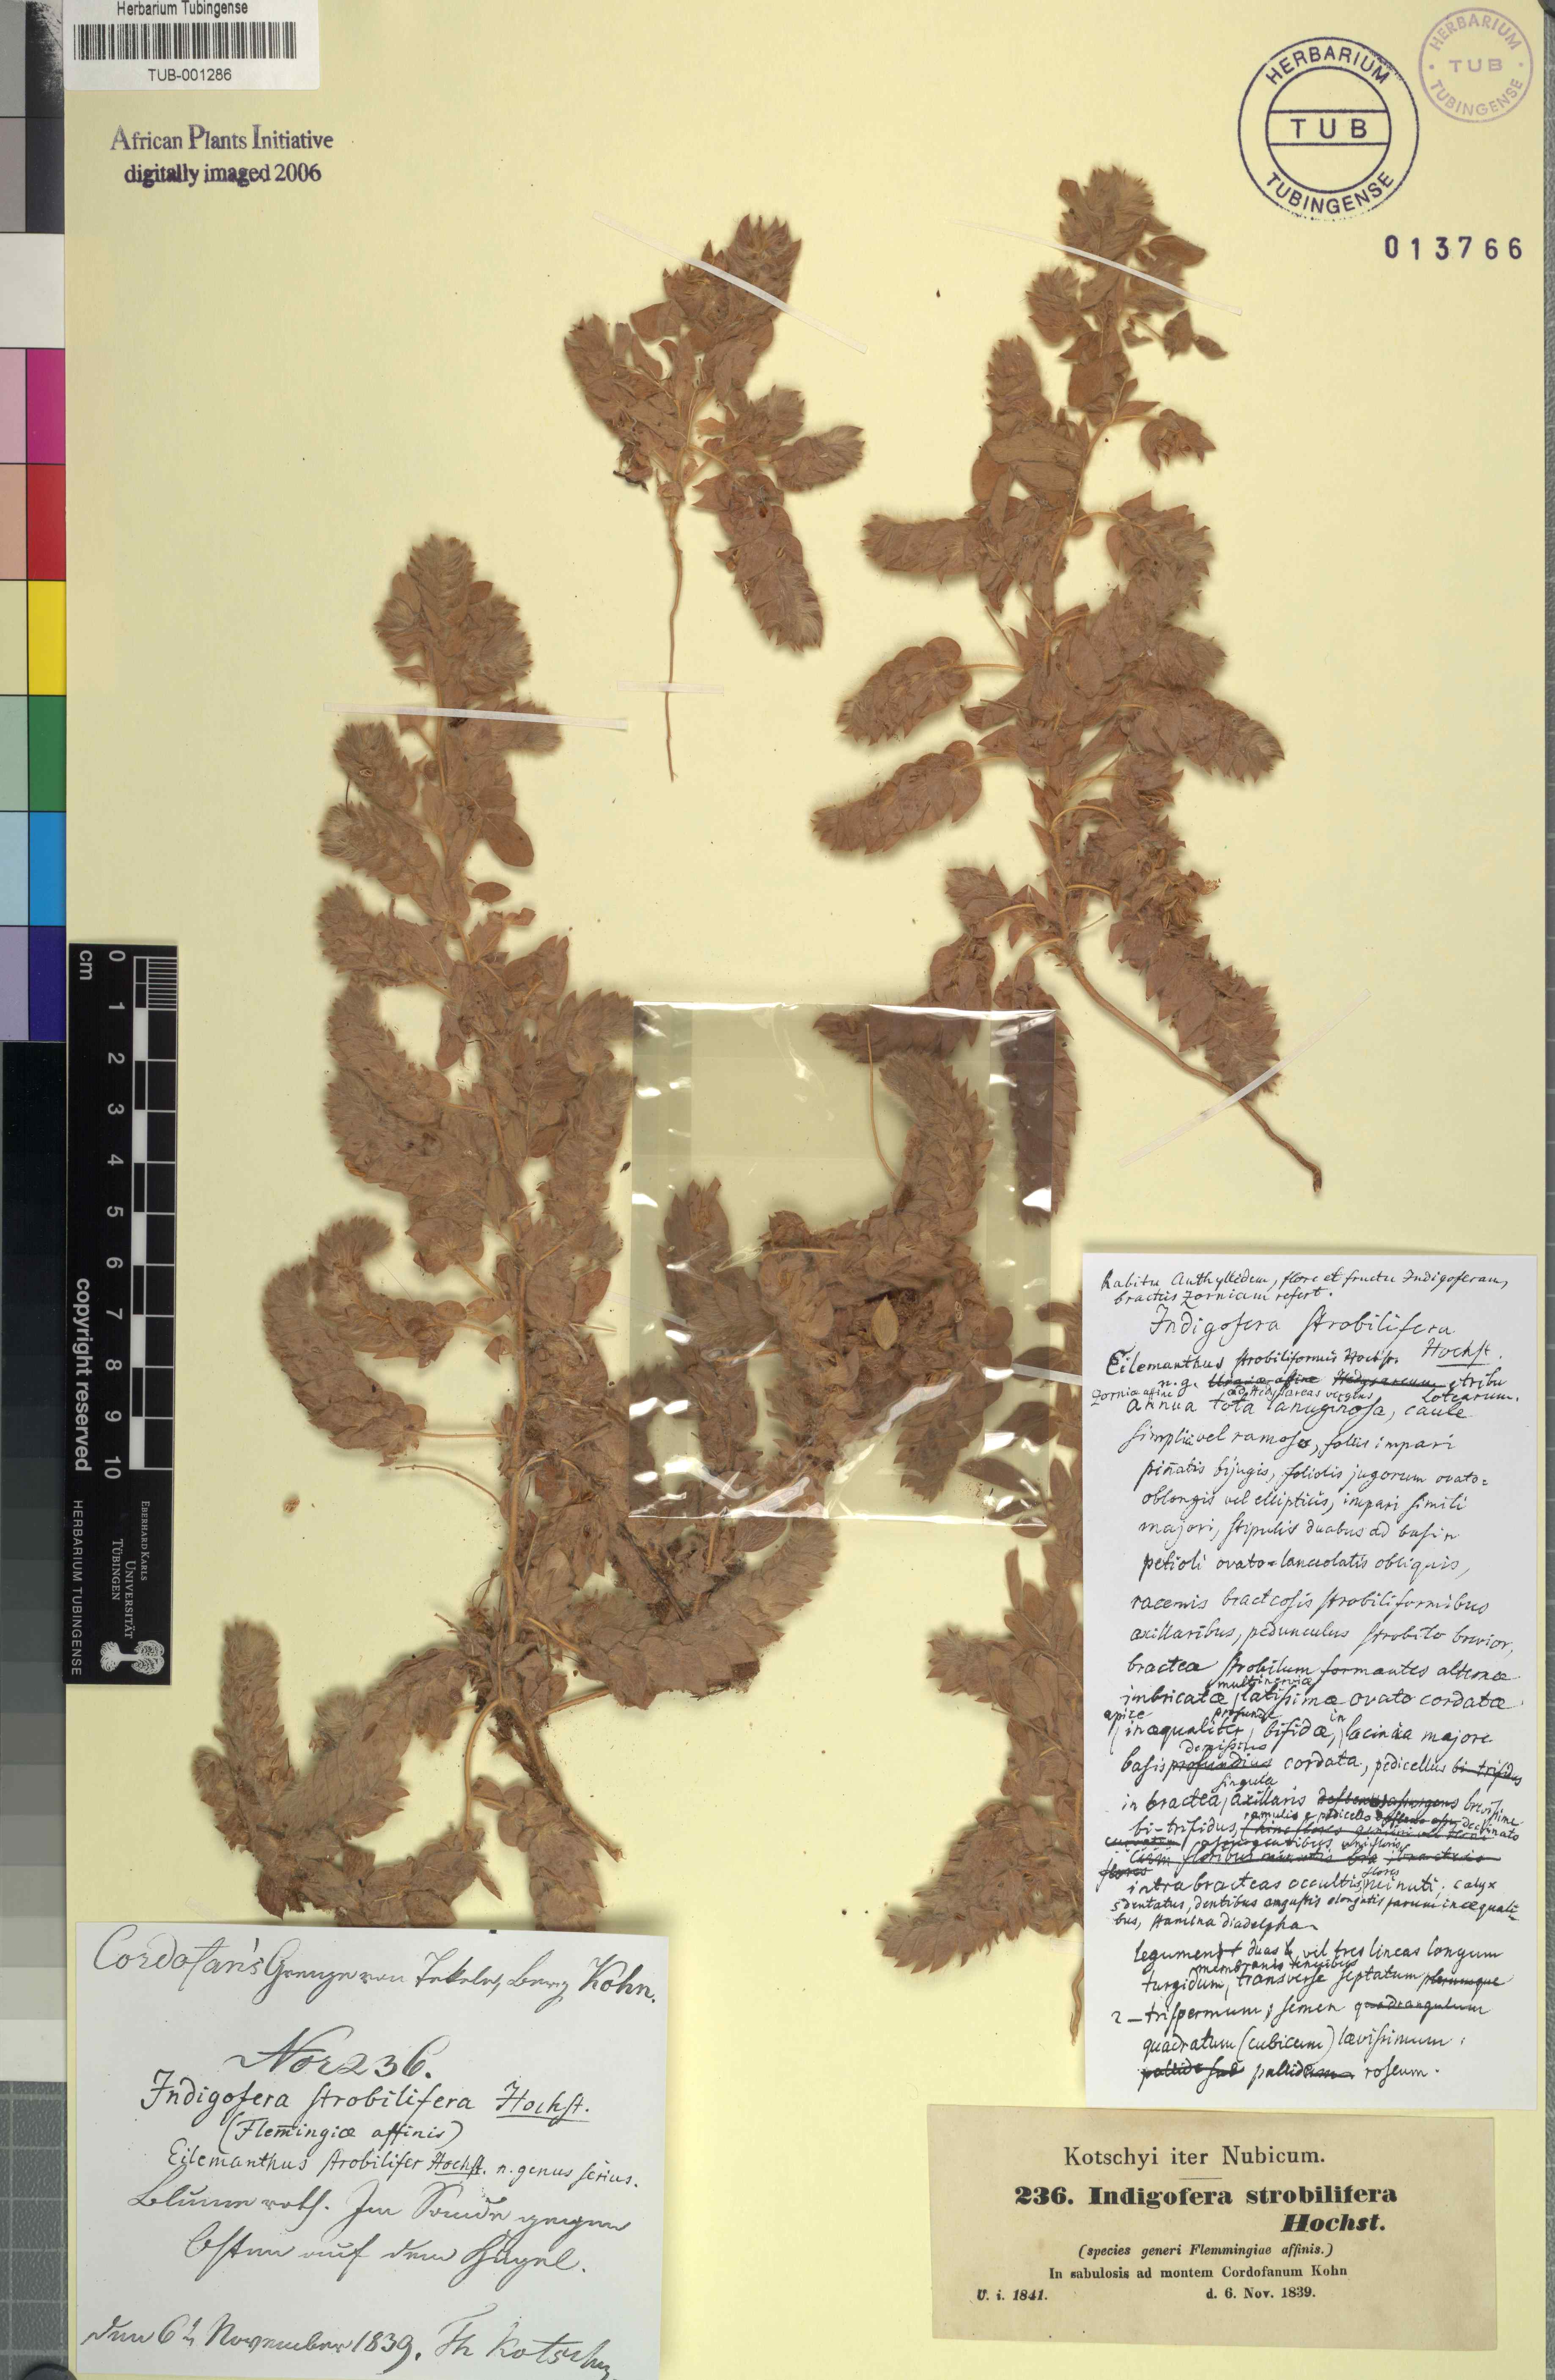 Herbarium Tubingense
TUB-001286
African Plants Initiative
digitally imaged 2006
HERBARIUM
TUB
TUBINGENSE
HERBARIUM
TUB
TUBINGENSE
013766
cm
0 1 2 3 4 5 6 7 8 9 10
copyright reserved
HERBARIUM TUBINGENSE
EBERHARD KARLS
UNIVERSITÄT
TÜBINGEN
habitu Anthyllidem, flore et fructu Indigoferam,
bracteis Zorniam refert.
Indigofera strobilifera
Hochst.
Eilemanthus strobiliformis Hochst.
n. g. Urariae affine Hedysareum, tribu
Zorniae affine ad Hedysareas vergens Lotearum.
annua tota lanuginosa, caule
simplici vel ramoso, foliis impari
pinatis bijugis, foliolis jugorum ovato=
oblongis vel ellipticis, impari simili
majori, stipulis duabus ad basin
petioli ovato=lanceolatis obliquis,
racemis bracteosis strobiliformibus
axillaribus, pedunculus strobilo brevior,
bracteae strobilum formantes alternae
multinerviae
imbricatae, latissimae ovato cordatae
apice profunde in
inaequaliter, bifidae, lacinia majore
demissius
basis profundius cordata, pedicellus bi-trifidus
singula
in bractea, axillaris brevissime
bi-trifidus, ramulis e pedicello declinato
assurgentibus unifloris
cum floribus
flores
intra bracteas occultis, minuti, calyx
5dentatus, dentibus angustis elongatis parum inaequali=
bus, stamina diadelpha
legumen duas vel tres lineas longum
membranis tenuibus
turgidum, transverse septatum plerumque
2-trispermum; semen quadrangulum
quadratum (cubicum) laevissimum,
pallide sub pallidum roseum.
Cordofan's Kohn.
Nro 236.
Indigofera strobilifera Hochst.
(Flemingiae affinis)
Eilemanthus strobilifer Hochst. n. genus serius.
Blume roth. Im Sande gegen
Osten auf dem Hügel.
den 6t November 1839. Th Kotschy
Kotschyi iter Nubicum.
236. Indigofera strobilifera
Hochst.
(species generi Flemmingiae affinis.)
In sabulosis ad montem Cordofanum Kohn
U. i. 1841. d. 6. Nov. 1839.